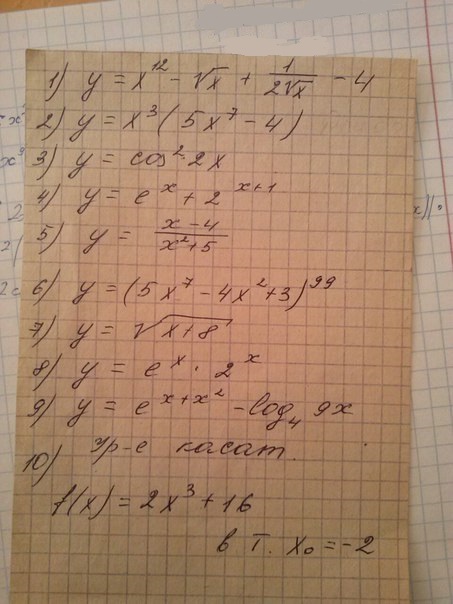 1) y = x¹² - √x + 1/(2√x) - 4
2) y = x³(5x⁷ - 4)
3) y = cos² 2x
4) y = eˣ + 2ˣ⁺¹
5) y = (x - 4)/(x² + 5)
6) y = (5x⁷ - 4x² + 3)⁹⁹
7) y = √(x + 8)
8) y = eˣ · 2ˣ
9) y = e^(x + x²) - log₄ 9x
10) Ур-е касат.
f(x) = 2x³ + 16
в т. x₀ = -2